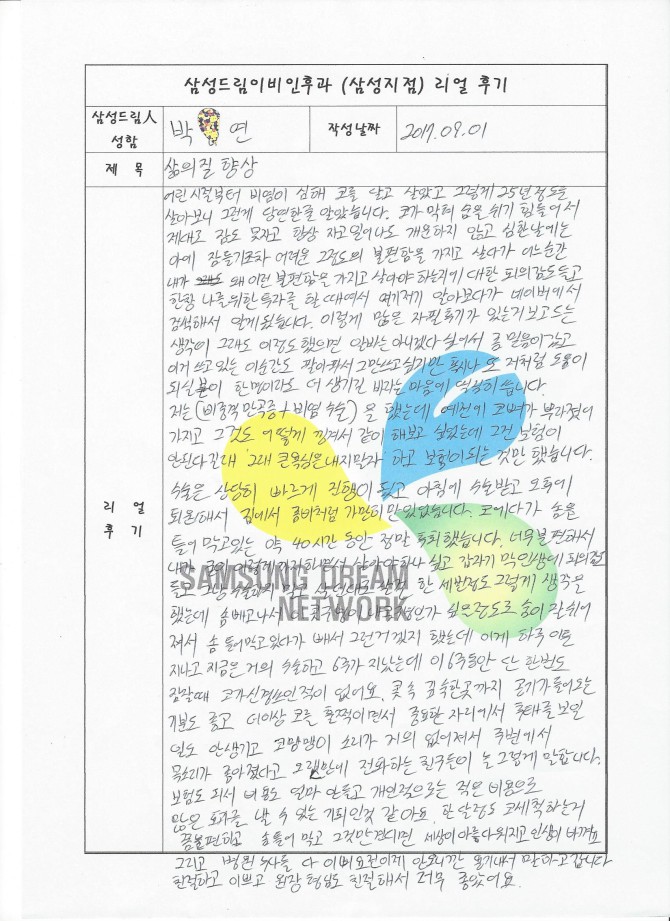 삼성드림이비인후과 (삼성지점) 리얼 후기
삼성드림人 성함 박 연 작성날짜 2017.09.01
제 목 삶의질 향상
리 얼 후 기
어린 시절부터 비염이 심해 코를 달고 살았고 그렇게 25년정도를
살아보니 그런게 당연한줄 알았습니다. 코가 막혀 숨을 쉬기 힘들어서
제대로 잠도 못자고 항상 자고 일어나도 개운하지 않고 심한날에는
아예 잠들기조차 어려운 그정도의 불편함을 가지고 살다가 어느순간
내가 왜 이런 불편함을 가지고 살아야 하는지에 대한 회의감도 들고
한창 나를위한 투자를 할 때여서 여기저기 알아보다가 네이버에서
검색해서 알게 됬습니다. 이렇게 많은 자필후기가 있는거 보고 드는
생각이 그래도 이정도 했으면 안하는 아니겠다 싶어서 좀 믿음이 갔고
이거 쓰고 있는 이순간도 팔아파서 그만쓰고싶기만 혹시나 또 저처럼 도움이
되실분이 한명이라도 더 생기길 바라는 마음에 열심히 씁니다.
저는 (비중격 만곡증 + 비염 수술) 을 했는데 예전에 코뼈가 부러졌어
가지고 그것도 어떻게 껴서 같이 해보고 싶었는데 그건 보험이
안된다길래 '그래 큰욕심은 내지말자' 하고 보험이 되는 것만 했습니다.
수술은 상당히 빠르게 진행이 됬고 아침에 수술받고 오후에
퇴원해서 집에서 좀비처럼 가만히만 있었습니다. 코에다가 솜을
틀어 막고있는 약 40시간 동안 정말 후회했습니다. 너무불편해서
내가 이렇게까지 하면서 살아야하나 싶고 갑자기 막 인생에 회의감
들고 한 세번정도 그렇게 생각을
했는데 솜빼고나서 싶은정도로 숨이 잘쉬어
져서 솜 틀어막고있다가 빼서 그런거겠지 했는데 이게 하루 이틀
지나고 지금은 거의 수술하고 6주가 지났는데 이 6주동안 단 한번도
잠잘때 코가 신경쓰인적이 없어요. 콧속 깊숙한곳까지 공기가 들어오는
기분도 좋고 더이상 코를 훌쩍이면서 중요한 자리에서 추태를 보일
일도 안생기고 코맹맹이 소리가 거의 없어져서 주변에서
목소리가 좋아졌다고 오랜만에 전화하는 친구들이 늘 그렇게 말합니다.
보험도 되서 비용도 얼마 안들고 개인적으로는 적은 비용으로
많은 효과를 낼 수 있는 기회인것 같아요 한달정도 코세척하는거
좀불편하고 솜틀어 막고 그것만견디면 세상이 아름다워지고 인생이 바뀌어요
그리고 병원 간호사들 다
친절하고 이쁘고 원장 형님도 친절해서 너무 좋았어요.
SAMSUNG DREAM
NETWORK